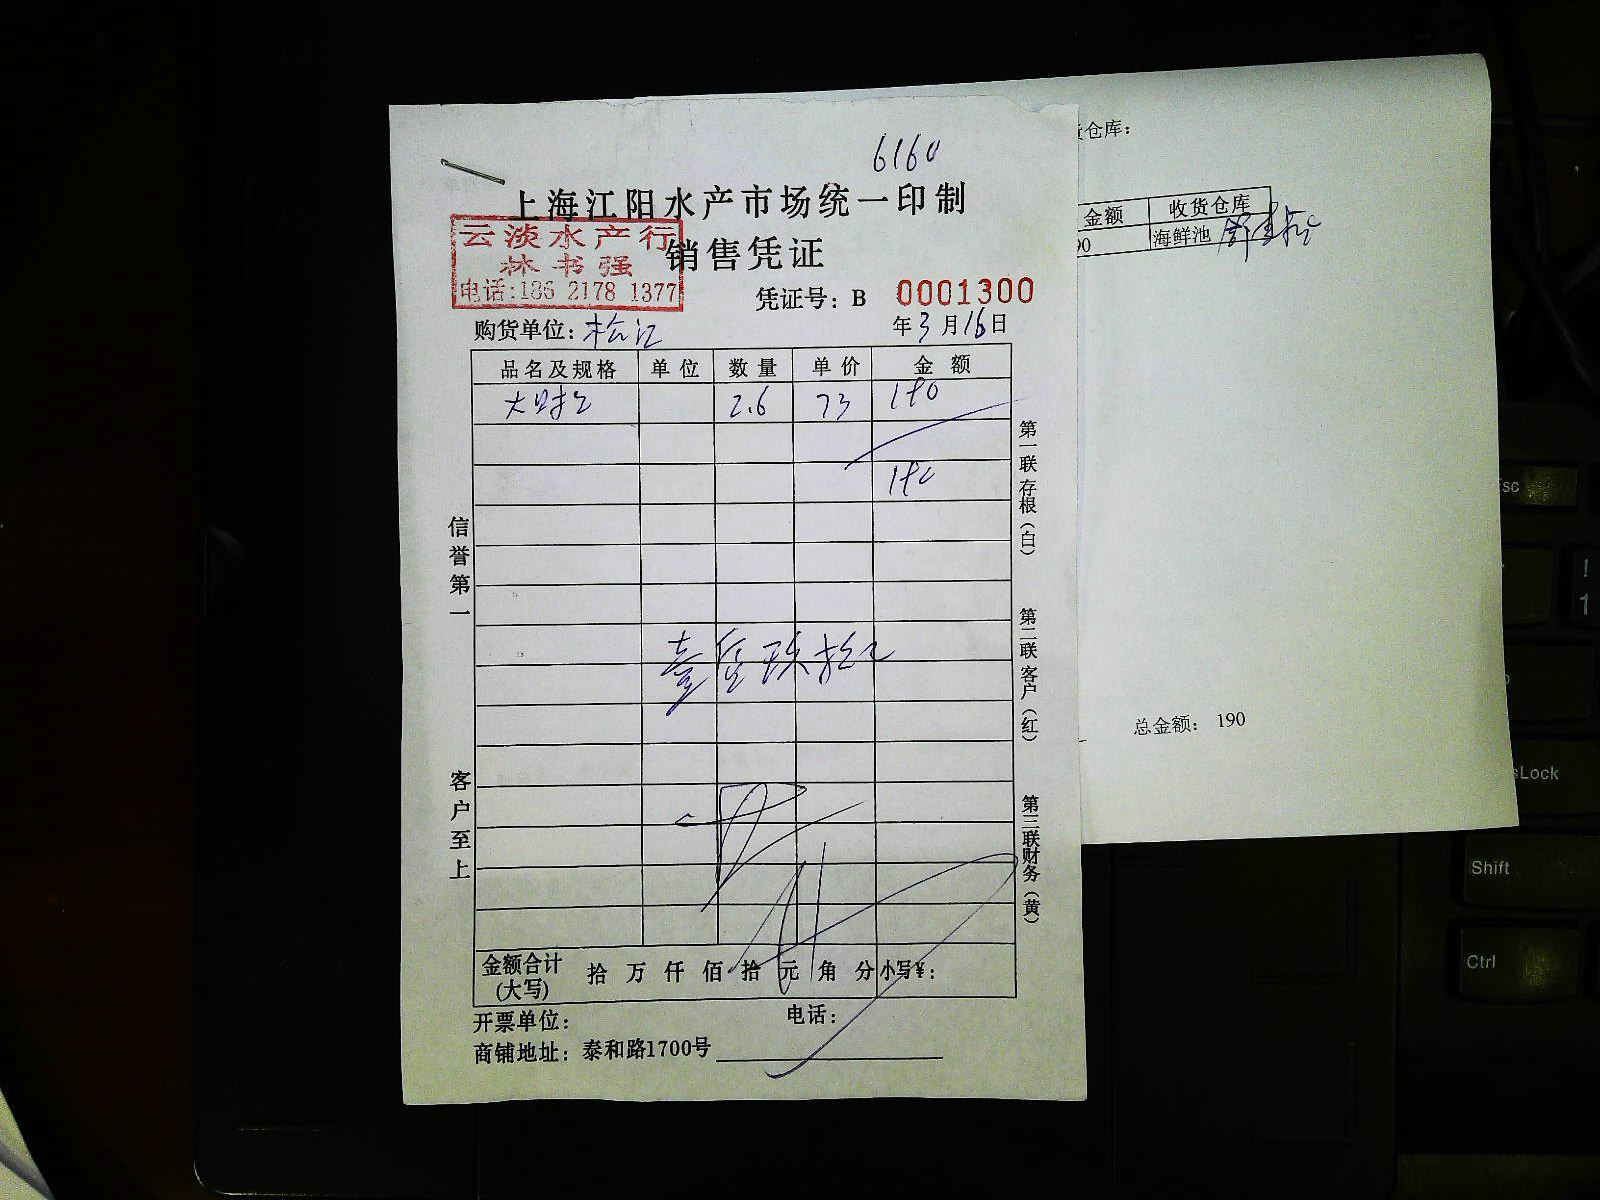 6160
上海江阳水产市场统一印制
销售凭证
云淡水产行
林书强
电话:186 2178 1377
凭证号: B 0001300
购货单位: 松江
年3月16日
品名及规格 单位 数量 单价 金额
2.6 73 190
190
壹佰玖拾元
信誉第一
客户至上
第一联 存根(白)
第二联 客户(红)
第三联 财务(黄)
金额合计(大写) 拾 万 仟 佰 拾 元 角 分 小写¥:
开票单位: 电话:
商铺地址: 泰和路1700号
仓库:
金额 收货仓库
90 海鲜池
总金额: 190
Esc
!
1
sLock
Shift
Ctrl